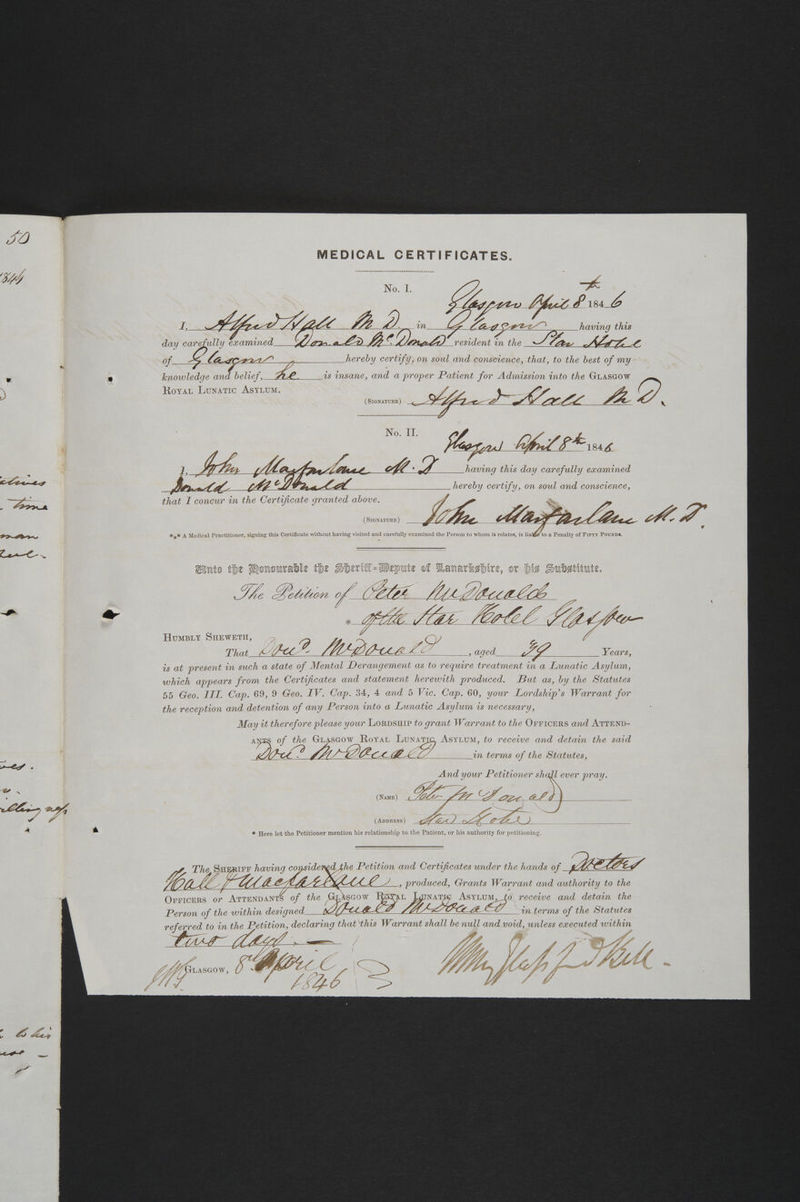 50
1846
MEDICAL CERTIFICATES.
No. I.
Glasgow April 8th 1846
I, Alfred Hall M D in Glasgow having this
day carefully examined Donald McDonald resident in the Star Hotel
of Glasgow hereby certify, on soul and conscience, that, to the best of my
knowledge and belief, he is insane, and a proper Patient for Admission into the GLASGOW
ROYAL LUNATIC ASYLUM.
(SIGNATURE) Alfred Hall M D.
No. II.
Glasgow April 8th 1846
I, John Macfarlane M.D having this day carefully examined
Donald McDonald hereby certify, on soul and conscience,
that I concur in the Certificate granted above.
(SIGNATURE) John Macfarlane M.D.
*** A Medical Practitioner, signing this Certificate without having visited and carefully examined the Person to whom it relates, is liable to a Penalty of FIFTY POUNDS.
Unto the Honourable the Sheriff-Depute of Lanarkshire, or his Substitute.
The Petition of Peter McDonald
* of the Star Hotel Glasgow
HUMBLY SHEWETH,
That Don.d McDonald, aged 39 Years,
is at present in such a state of Mental Derangement as to require treatment in a Lunatic Asylum,
which appears from the Certificates and statement herewith produced. But as, by the Statutes
55 Geo. III. Cap. 69, 9 Geo. IV. Cap. 34, 4 and 5 Vic. Cap. 60, your Lordship's Warrant for
the reception and detention of any Person into a Lunatic Asylum is necessary,
May it therefore please your LORDSHIP to grant Warrant to the OFFICERS and ATTEND-
ANTS of the GLASGOW ROYAL LUNATIC ASYLUM, to receive and detain the said
Don.d McDonald in terms of the Statutes,
And your Petitioner shall ever pray.
(NAME) Peter McDonald
(ADDRESS) Star Hotel
* Here let the Petitioner mention his relationship to the Patient, or his authority for petitioning.
The SHERIFF having considered the Petition and Certificates under the hands of Doctors
Hall & Macfarlane, produced, Grants Warrant and authority to the
OFFICERS or ATTENDANTS of the GLASGOW ROYAL LUNATIC ASYLUM, to receive and detain the
Person of the within designed Donald McDonald in terms of the Statutes
referred to in the Petition, declaring that this Warrant shall be null and void, unless executed within
two days.
GLASGOW, 8th April
1846
time
man
to his